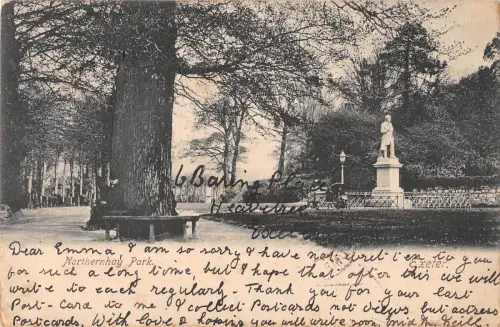 6 Baring Place
Heavitree
Northernhay Park.
Exeter.
Dear Emma, I am so sorry I have not written to you
for such a long time, but I hope that after this we will
write to each regularly. Thank you for your last
Post-Card to me I collect Postcards not views, but actress
Postcards. With love & hoping you will write soon, from